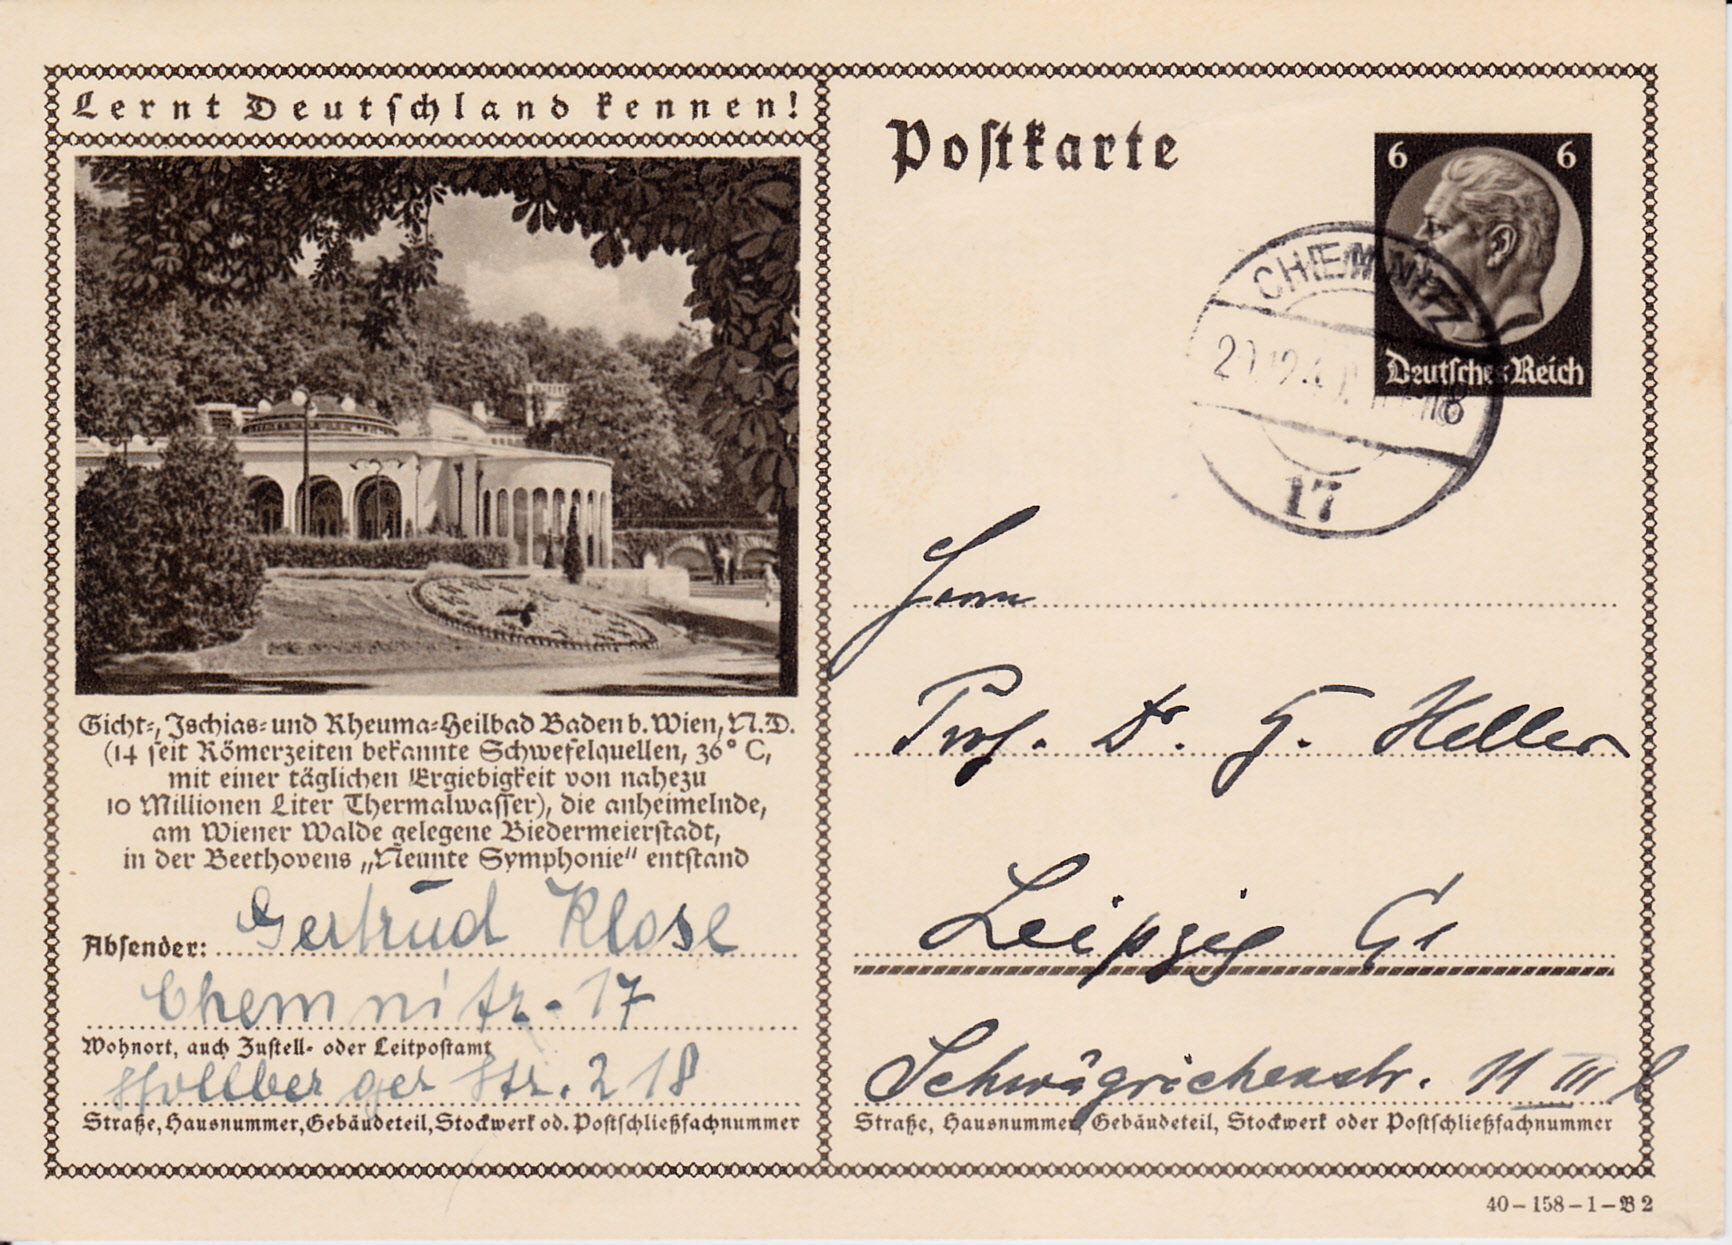 Lernt Deutschland kennen!
Gicht-, Ischias- und Rheuma-Heilbad Baden b. Wien, N.D.
(14 seit Römerzeiten bekannte Schwefelquellen, 36° C,
mit einer täglichen Ergiebigkeit von nahezu
10 Millionen Liter Thermalwasser), die anheimelnde,
am Wiener Walde gelegene Biedermeierstadt,
in der Beethovens „Neunte Symphonie“ entstand
Absender: Gertrud Klose
Chemnitz - 17
Wohnort, auch Zustell- oder Leitpostamt
Str. 218
Straße, Hausnummer, Gebäudeteil, Stockwerk od. Postschließfachnummer
Postkarte
6 6
Deutsches Reich
CHEMNITZ
17
Herrn
Prof. Dr. G. Heller
Leipzig C1
Schwägrichenstr. 11 III
Straße, Hausnummer, Gebäudeteil, Stockwerk oder Postschließfachnummer
40-158-1-B 2